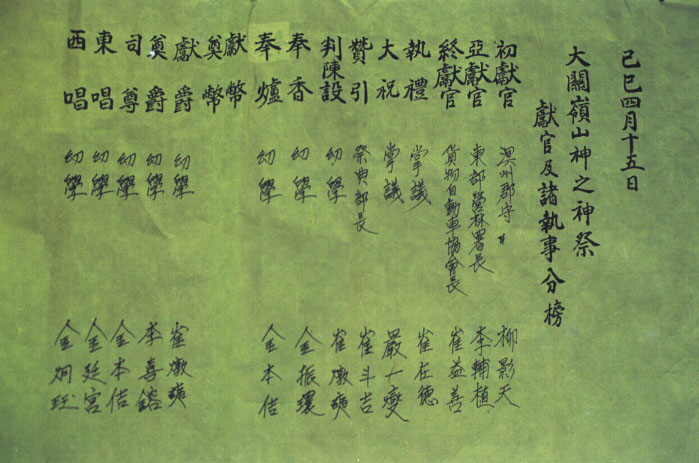 己巳四月十五日
大關嶺山神之神祭
獻官及諸執事分榜
初獻官 溟州郡守 柳影天
亞獻官 東部營林署長 李輔植
終獻官 貨物自動車協會長 崔益善
執禮 掌議 崔在德
大祝 掌議 嚴十燮
贊引 祭典部長 崔斗吉
判陳設 幼學 崔燉
奉香 幼學 金振環
奉爐 幼學 金本佶
獻幣
奠幣
獻爵 幼學 崔燉
奠爵 幼學 李喜鎔
司尊 幼學 金本佶
東唱 幼學 金廷宮
西唱 幼學 金炯